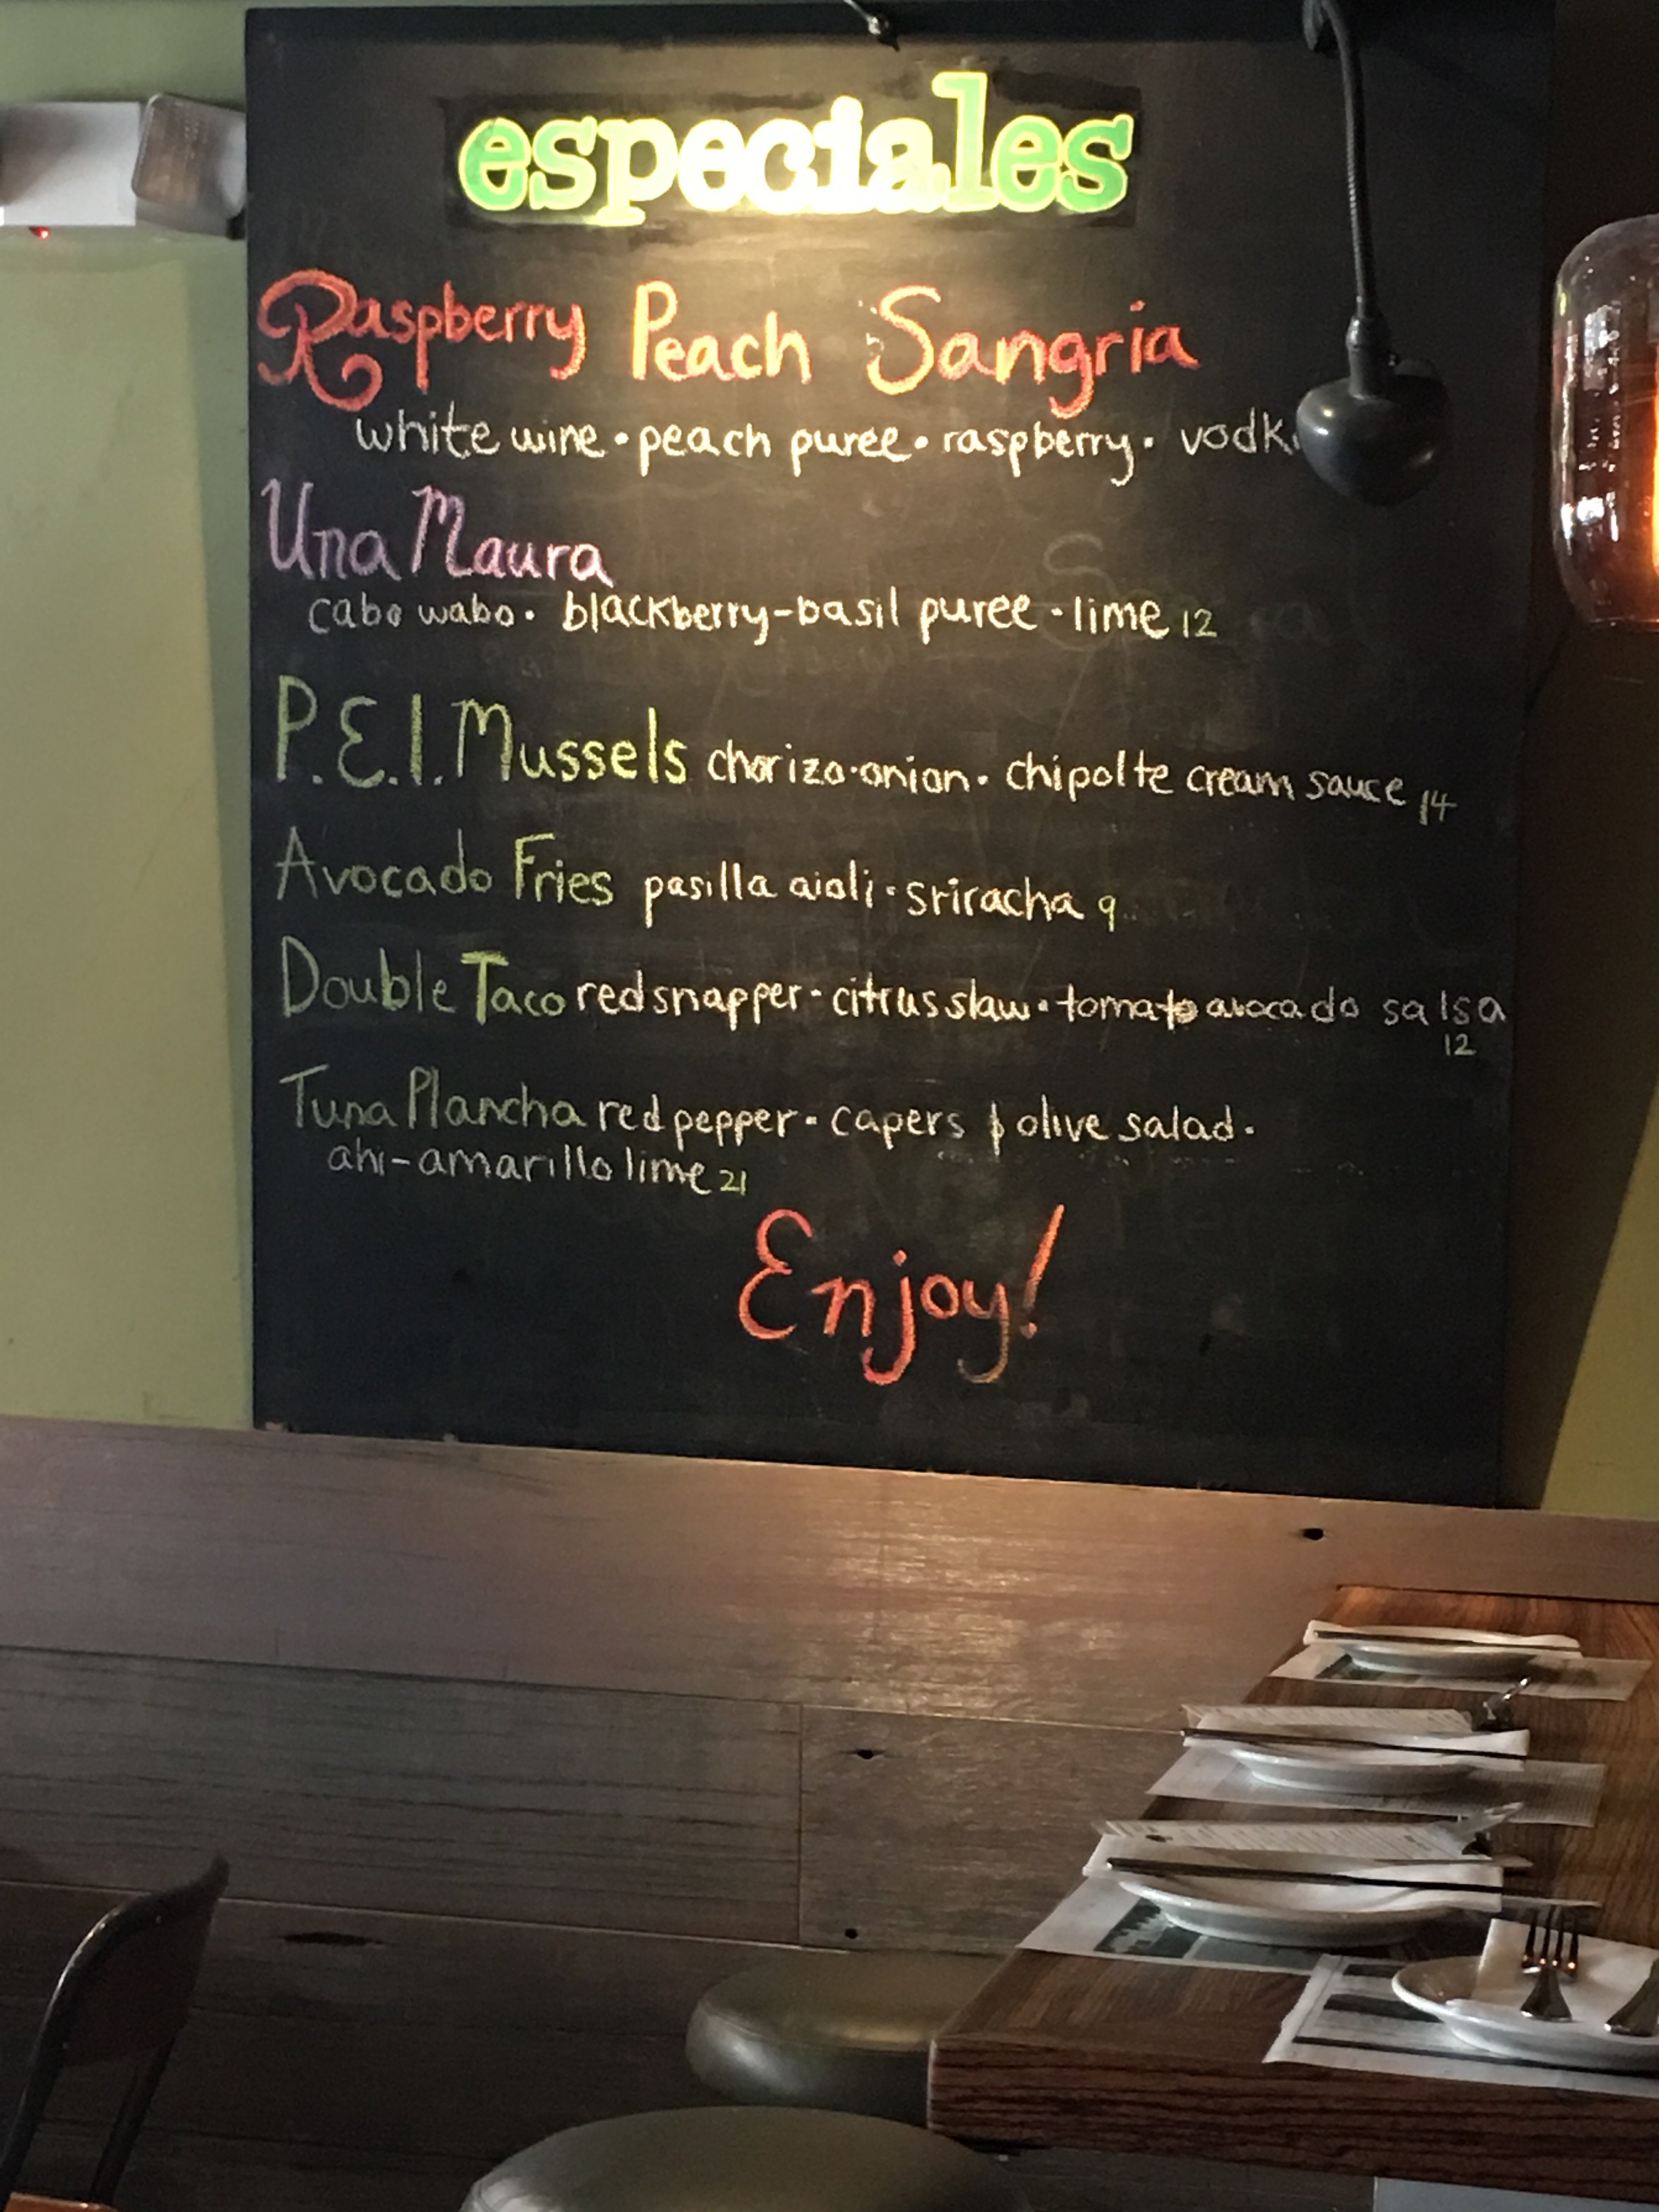 especiales
Raspberry Peach Sangria
white wine • peach puree • raspberry • vodk
Una Maura
cabo wabo • blackberry-basil puree • lime 12
P.E.I. Mussels chorizo • onion • chipolte cream sauce 14
Avocado Fries pasilla aioli • sriracha 9
Double Taco red snapper • citrus slaw • tomato avocado salsa
12
Tuna Plancha red pepper • capers & olive salad •
ahi-amarillo lime 21
Enjoy!